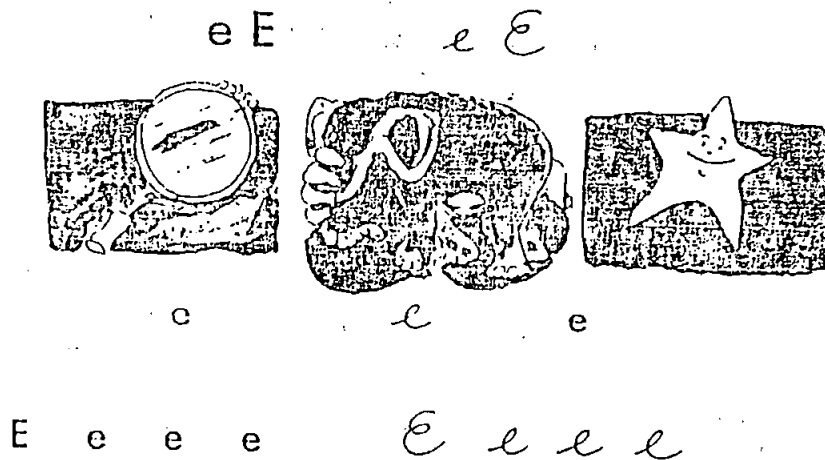 e E e E
e e e
E e e e E e e e